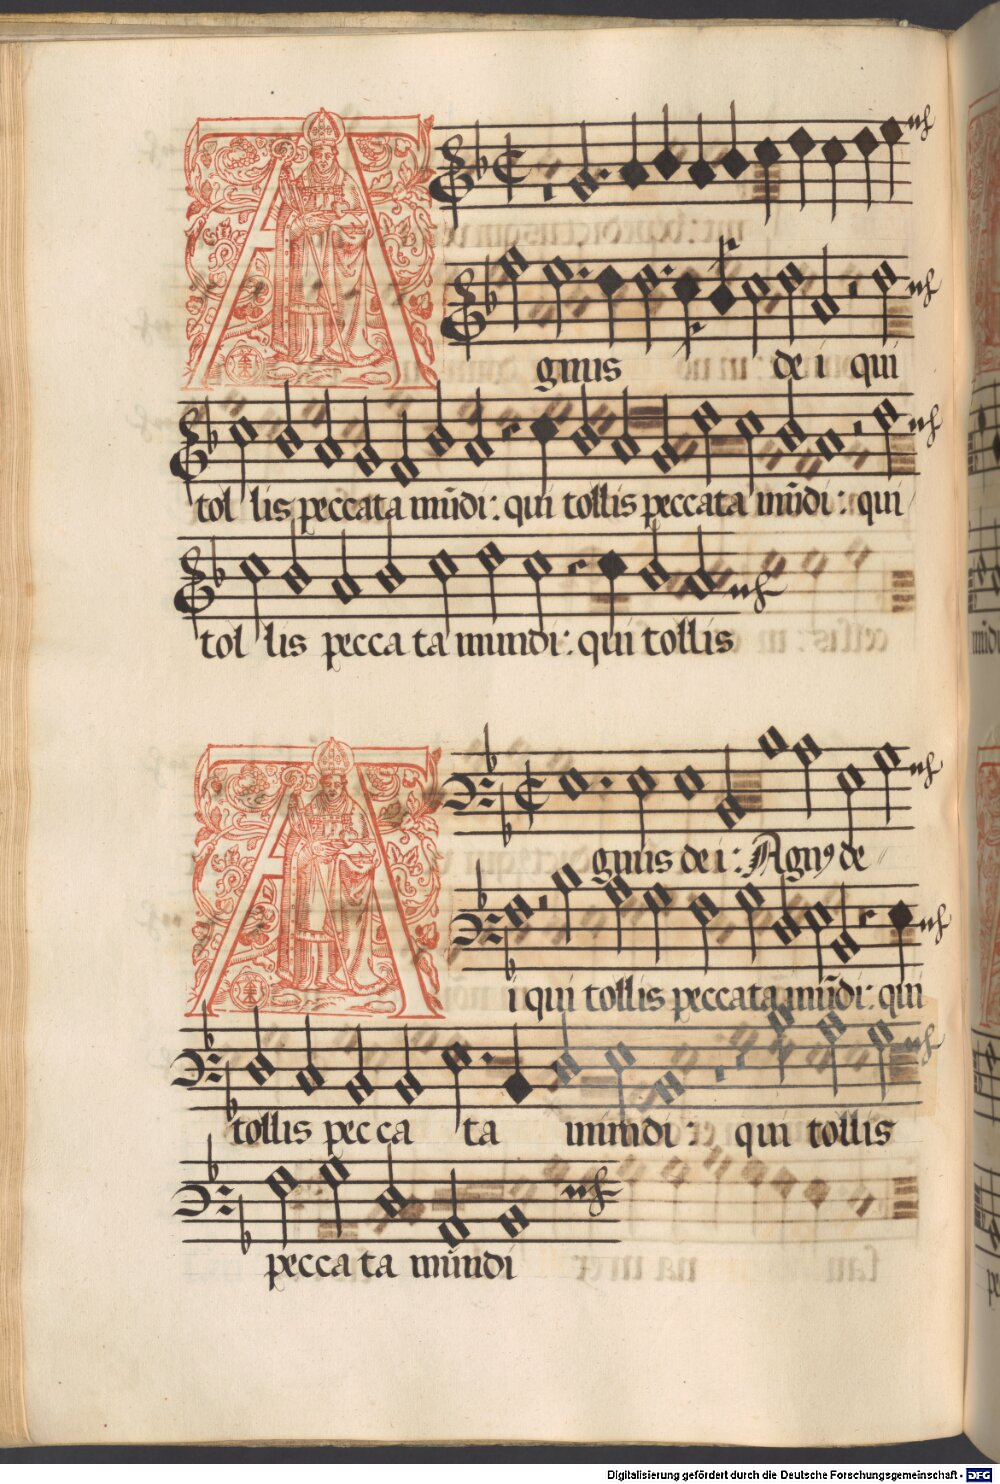 A
gnus de i qui
tol lis peccata mũdi: qui tollis peccata mũdi: qui
tol lis pecca ta mundi: qui tollis
A
gnus de i: Agnꝰ de
i qui tollis peccata mũdi: qui
tollis pec ca ta mundi: qui tollis
pecca ta mũndi
Digitalisierung gefördert durch die Deutsche Forschungsgemeinschaft - DFG